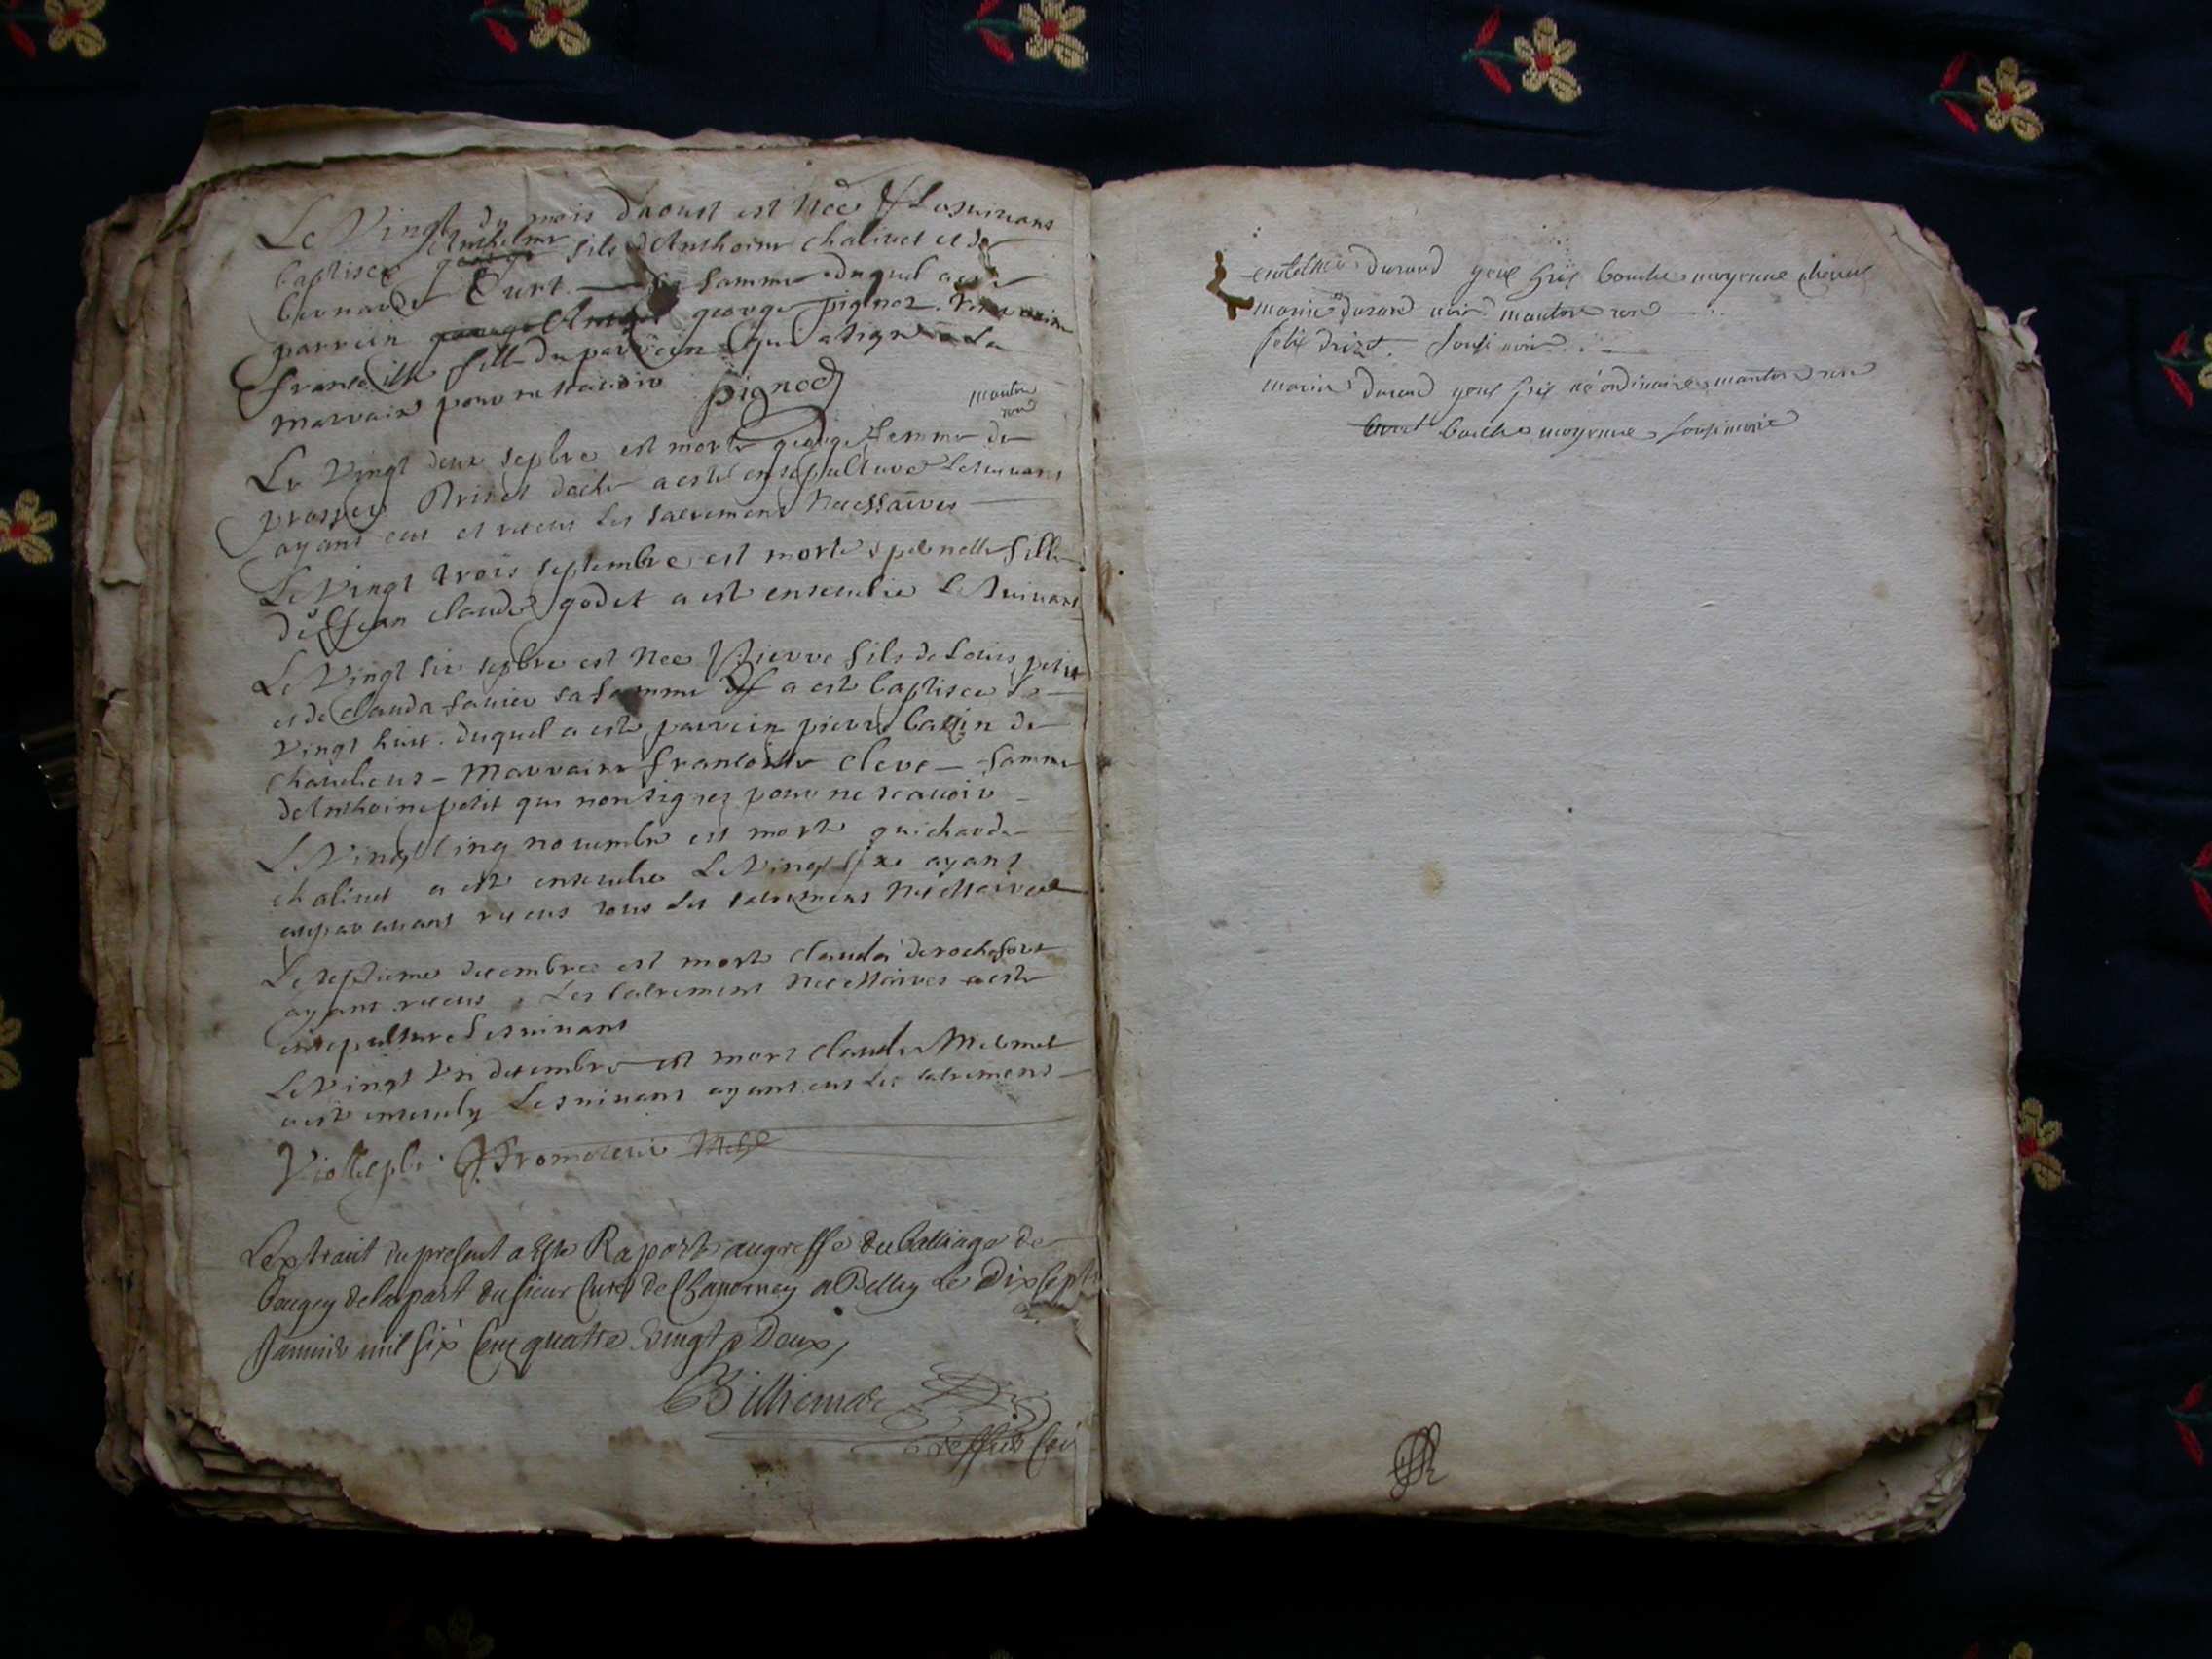 Le Vingt du mois daoust est Née & Lesuivans
baptisee Anthelme fils dAnthoine chalinet et de
bernarde Curt sa famme duquel a este
parrein george pignoz. marraine
francoise fille du parrein qui a signe & La
marraine pour ne scavoir pignod
mantor
ron
Le Vingt deux sepbre est morte george femme de
prosper Brisel a esté ensepulture Lesuivans
ayans eus et receus Les sacremens Necessaires
Le Vingt trois septembre est morte pernelle fille
de Jean claude godet a esté ensevelie Lesuivans
Le Vingt six sepbre est Nee Pierre fils de Louis petit
et de clauda sa famme & a esté baptisee Le
Vingt huit. duquel a esté parrein pierre bavin de
marraine francoise cleve famme
dAnthoine petit qui non signes pour ne scavoir
Le Vingt cinq novembre est morte guicharde
chalinet a esté ensevelie Le Vingt six ayans
auparavans receus tous Les sacremens Necessaires
Le septieme decembre est morte clauda derochefort
ayans receus Les sacremens Necessaires a esté
ensepulture Lesuivans
Le Vingt Un decembre est mort claude Mermet
a esté ensevely Lesuivans ayans eus Les sacremens
Lextrait du present a Este Raporte au greffe du balliage de
bougey de la part du sieur Curé de Chavorney a Belley Le Dix sept
Janvier mil six Cens quatre vingt Deux,
Billiemaz
Greffier
durand yeux gris bouche moyenne cheveux
marie durand noir manton ron
felix drizet. sousi noir
marie durand yeux gris né ordinaire manton ron
bouche moyenne sousi noire